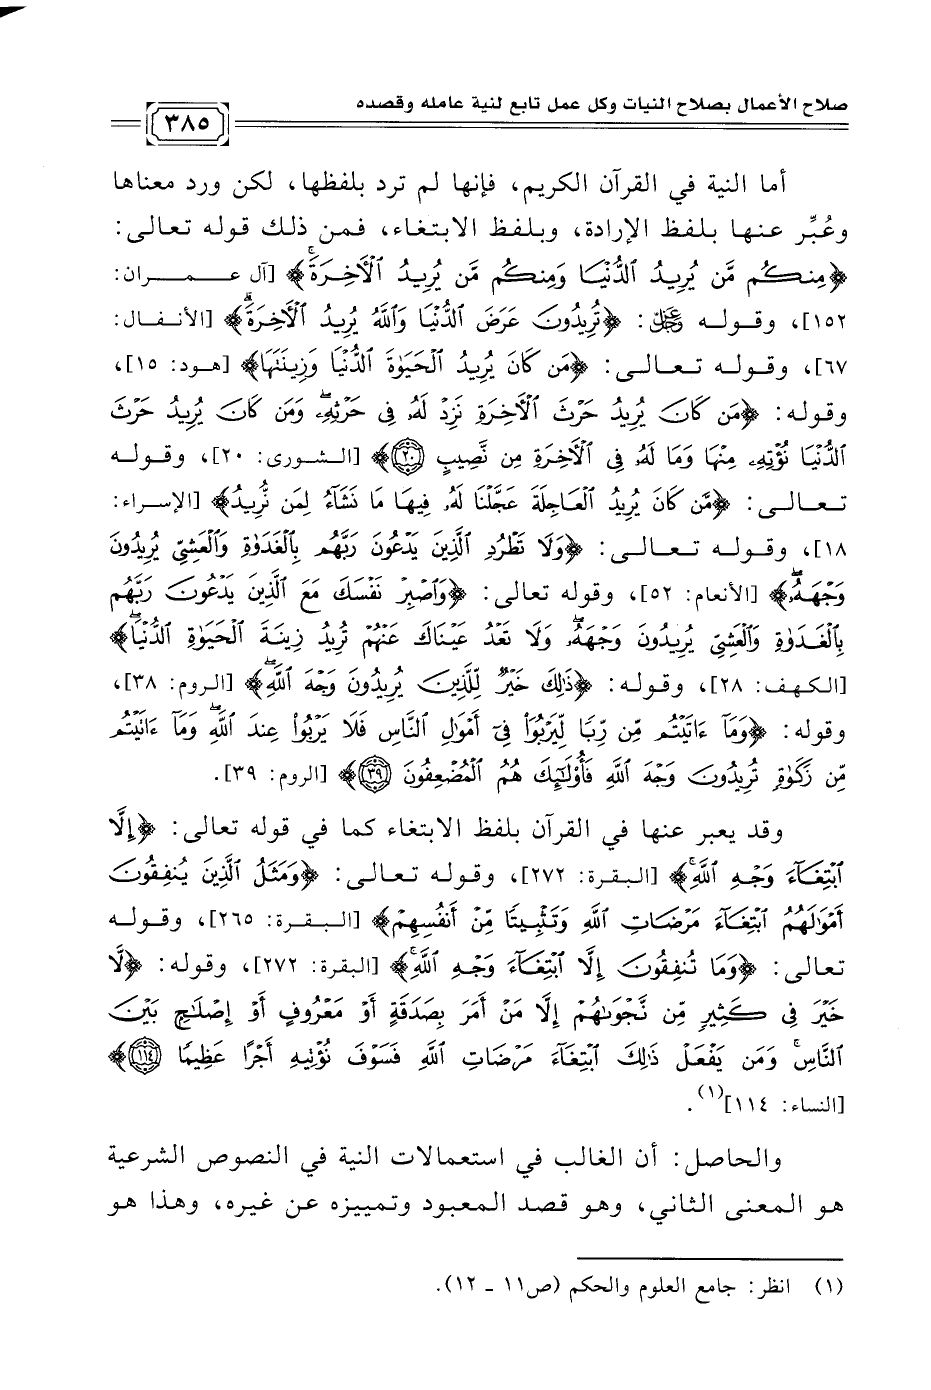 صلاح الأعمال بصلاح النيات وكل عمل تابع لنية عامله وقصده
٣٨٥
أما النية في القرآن الكريم، فإنها لم ترد بلفظها، لكن ورد معناها
وعُبِّر عنها بلفظ الإرادة، وبلفظ الابتغاء، فمن ذلك قوله تعالى:
﴿مِنكُم مَّن يُرِيدُ ٱلدُّنۡيَا وَمِنكُم مَّن يُرِيدُ ٱلۡأٓخِرَةَۚ﴾ [آل عمران:
١٥٢]، وقوله ﷿: ﴿تُرِيدُونَ عَرَضَ ٱلدُّنۡيَا وَٱللَّهُ يُرِيدُ ٱلۡأٓخِرَةَۗ﴾ [الأنفال:
٦٧]، وقوله تعالى: ﴿مَن كَانَ يُرِيدُ ٱلۡحَيَوٰةَ ٱلدُّنۡيَا وَزِينَتَهَا﴾ [هود: ١٥]،
وقوله: ﴿مَن كَانَ يُرِيدُ حَرۡثَ ٱلۡأٓخِرَةِ نَزِدۡ لَهُۥ فِي حَرۡثِهِۦۖ وَمَن كَانَ يُرِيدُ حَرۡثَ
ٱلدُّنۡيَا نُؤۡتِهِۦ مِنۡهَا وَمَا لَهُۥ فِي ٱلۡأٓخِرَةِ مِن نَّصِيبٍ ٢٠﴾ [الشورى: ٢٠]، وقوله
تعالى: ﴿مَّن كَانَ يُرِيدُ ٱلۡعَاجِلَةَ عَجَّلۡنَا لَهُۥ فِيهَا مَا نَشَآءُ لِمَن نُّرِيدُ﴾ [الإسراء:
١٨]، وقوله تعالى: ﴿وَلَا تَطۡرُدِ ٱلَّذِينَ يَدۡعُونَ رَبَّهُم بِٱلۡغَدَوٰةِ وَٱلۡعَشِيِّ يُرِيدُونَ
وَجۡهَهُۥۖ﴾ [الأنعام: ٥٢]، وقوله تعالى: ﴿وَٱصۡبِرۡ نَفۡسَكَ مَعَ ٱلَّذِينَ يَدۡعُونَ رَبَّهُم
بِٱلۡغَدَوٰةِ وَٱلۡعَشِيِّ يُرِيدُونَ وَجۡهَهُۥۖ وَلَا تَعۡدُ عَيۡنَاكَ عَنۡهُمۡ تُرِيدُ زِينَةَ ٱلۡحَيَوٰةِ ٱلدُّنۡيَاۖ﴾
[الكهف: ٢٨]، وقوله: ﴿ذَٰلِكَ خَيۡرٞ لِّلَّذِينَ يُرِيدُونَ وَجۡهَ ٱللَّهِۖ﴾ [الروم: ٣٨]،
وقوله: ﴿وَمَآ ءَاتَيۡتُم مِّن رِّبٗا لِّيَرۡبُوَاْ فِيٓ أَمۡوَٰلِ ٱلنَّاسِ فَلَا يَرۡبُواْ عِندَ ٱللَّهِۖ وَمَآ ءَاتَيۡتُم
مِّن زَكَوٰةٖ تُرِيدُونَ وَجۡهَ ٱللَّهِ فَأُوْلَٰٓئِكَ هُمُ ٱلۡمُضۡعِفُونَ ٣٩﴾ [الروم: ٣٩].
وقد يعبر عنها في القرآن بلفظ الابتغاء كما في قوله تعالى: ﴿إِلَّا
ٱبۡتِغَآءَ وَجۡهِ ٱللَّهِۚ﴾ [البقرة: ٢٧٢]، وقوله تعالى: ﴿وَمَثَلُ ٱلَّذِينَ يُنفِقُونَ
أَمۡوَٰلَهُمُ ٱبۡتِغَآءَ مَرۡضَاتِ ٱللَّهِ وَتَثۡبِيتٗا مِّنۡ أَنفُسِهِمۡ﴾ [البقرة: ٢٦٥]، وقوله
تعالى: ﴿وَمَا تُنفِقُونَ إِلَّا ٱبۡتِغَآءَ وَجۡهِ ٱللَّهِۚ﴾ [البقرة: ٢٧٢]، وقوله: ﴿لَّا
خَيۡرَ فِي كَثِيرٖ مِّن نَّجۡوَىٰهُمۡ إِلَّا مَنۡ أَمَرَ بِصَدَقَةٍ أَوۡ مَعۡرُوفٍ أَوۡ إِصۡلَٰحِۭ بَيۡنَ
ٱلنَّاسِۚ وَمَن يَفۡعَلۡ ذَٰلِكَ ٱبۡتِغَآءَ مَرۡضَاتِ ٱللَّهِ فَسَوۡفَ نُؤۡتِيهِ أَجۡرًا عَظِيمٗا ١١٤﴾
[النساء: ١١٤](١).
والحاصل: أن الغالب في استعمالات النية في النصوص الشرعية
هو المعنى الثاني، وهو قصد المعبود وتمييزه عن غيره، وهذا هو
(١) انظر: جامع العلوم والحكم (ص١١ - ١٢).